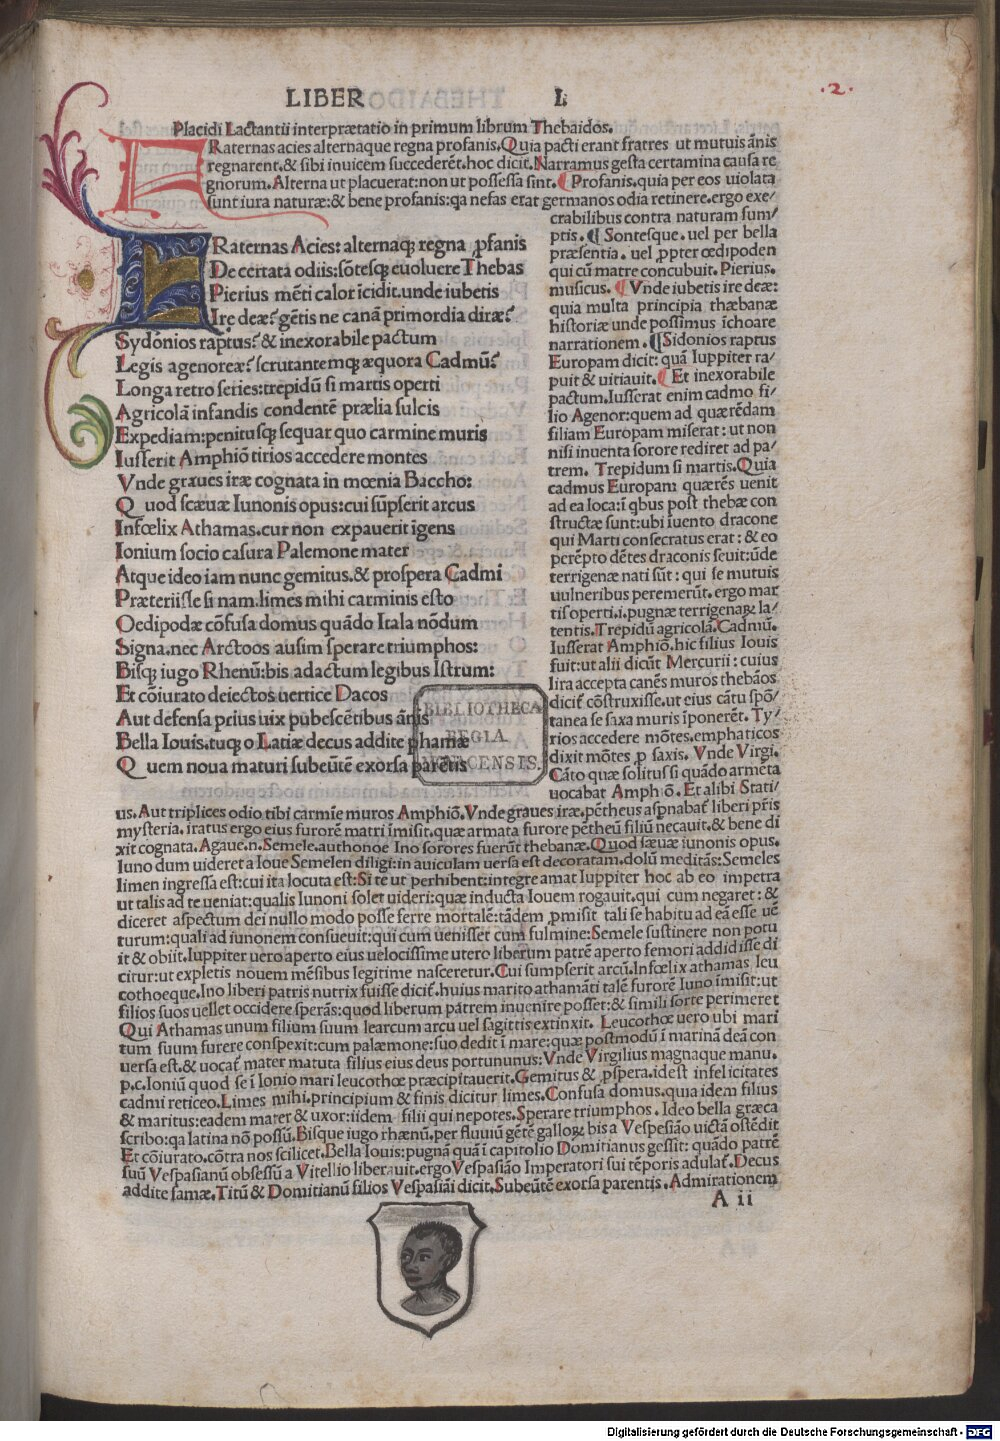 LIBER I.
.2.
Placidi Lactantii interprætatio in primum librum Thebaidos.
FRaternas acies alternaque regna profanis. Quia pacti erant fratres ut mutuis ānis
regnarent. & sibi inuicem succederēt. hoc dicit. Narramus gesta certamina causa re
gnorum. Alterna ut placuerat: non ut possessa sint. ¶ Profanis. quia per eos uiolata
sunt iura naturæ: & bene profanis: qa nefas erat germanos odia retinere. ergo exe/
FRaternas Acies: alternaqꝫ regna ꝓfanis
De certata odiis: sōtesqꝫ euoluere Thebas
Pierius mēti calor īcidit. unde iubetis
Ire deæ? gētis ne canā primordia diræ?
Sydonios raptus? & inexorabile pactum
Legis agenoreæ? scrutantemqꝫ æquora Cadmū?
Longa retro series: trepidū si martis operti
Agricolā infandis condentē prælia sulcis
Expediam: penitusqꝫ sequar quo carmine muris
Iusserit Amphiō tirios accedere montes
Vnde graues iræ cognata in mœnia Baccho:
Quod scæuæ Iunonis opus: cui sūpserit arcus
Infœlix Athamas. cur non expauerit īgens
Ionium socio casura Palemone mater
Atque ideo iam nunc gemitus. & prospera Cadmi
Præteriisse si nam. limes mihi carminis esto
Oedipodæ cōfusa domus quādo Itala nōdum
Signa. nec Arctoos ausim sperare triumphos:
Bisqꝫ iugo Rhenū: bis adactum legibus Istrum:
Et cōiurato deiectos uertice Dacos
Aut defensa prius uix pubescētibus ānis
Bella Iouis. tuqꝫ o Latiæ decus addite phamæ
Quem noua maturi subeūtē exorsa parētis
BIBLIOTHECA
REGIA
MONACENSIS.
crabilibus contra naturam sum/
ptis. ¶ Sontesque. uel per bella
præsentia. uel ꝓpter œdipoden
qui cū matre concubuit. Pierius.
musicus. ¶ Vnde iubetis ire deæ:
quia multa principia thæbanæ
historiæ unde possimus īchoare
narrationem. ¶ Sidonios raptus
Europam dicit: quā Iuppiter ra/
puit & uitiauit. ¶ Et inexorabile
pactum. Iusserat enim cadmo fi/
lio Agenor: quem ad quærēdam
filiam Europam miserat: ut non
nisi inuenta sorore rediret ad pa/
trem. Trepidum si martis. Quia
cadmus Europam quærēs uenit
ad ea loca: ī qbus post thebæ con
structæ sunt: ubi īuento dracone
qui Marti consecratus erat: & eo
perēpto dētes draconis seuit: ūde
terrigenæ nati sūt: qui se mutuis
uulneribus peremerūt. ergo mar
tis operti. i. pugnæ terrigenaꝝ la/
tentis. Trepidū agricolā. Cadmū.
Iusserat Amphiō. hic filius Iouis
fuit: ut alii dicūt Mercurii: cuius
lira accepta canēs muros thebāos
dicit cōstruxisse. ut eius cātu spō/
tanea se saxa muris īponerēt. Ty/
rios accedere mōtes. emphaticos
dixit mōtes ꝓ saxis. Vnde Virgi.
Cāto quæ solitus si quādo armēta
uocabat Amphiō. Et alibi Stati/
us. Aut triplices odio tibi carmīe muros Amphiō. Vnde graues iræ. pētheus aspnabat liberi pr̄is
mysteria. iratus ergo eius furorē matri īmisit. quæ armata furore pētheū filiū necauit. & bene di
xit cognata. Agaue. n. Semele. authonoe Ino sorores fuerūt thebanæ. Quod sæuæ iunonis opus.
Iuno dum uideret a Ioue Semelen diligi: in auiculam uersa est decoratam. dolū meditās: Semeles
limen ingressa est: cui ita locuta est: Si te ut perhibent: integre amat Iuppiter hoc ab eo impetra
ut talis ad te ueniat: qualis Iunoni solet uideri: quæ inducta Iouem rogauit. qui cum negaret: &
diceret aspectum dei nullo modo posse ferre mortalē: tādem ꝓmisit tali se habitu ad eā esse uē
turum: quali ad iunonem consueuit: qui cum uenisset cum fulmine: Semele sustinere non potu
it & obiit. Iuppiter uero aperto eius uelocissime utero liberum patrē aperto femori addidisse di
citur: ut expletis nouem mēsibus legitime nasceretur. Cui sumpserit arcū. Infœlix athamas leu
cothoeque. Ino liberi patris nutrix fuisse dicit. huius marito athamāti talē furorē Iuno īmisit: ut
filios suos uellet occidere sperās: quod liberum patrem inuenire posset: & simili sorte perimeret
Qui Athamas unum filium suum learcum arcu uel sagittis extinxit. Leucothoe uero ubi mari
tum suum furere conspexit: cum palæmone: suo dedit ī mare: quæ postmodū ī marinā deā con
uersa est. & uocat mater matuta filius eius deus portunus: Vnde Virgilius magnaque manu.
p.c. Ioniū quod se ī Ionio mari leucothoe præcipitauerit. Gemitus & ꝓspera. idest infelicitates
cadmi reticeo. Limes mihi. principium & finis dicitur limes. Confusa domus. quia idem filius
& maritus: eadem mater & uxor: iidem filii qui nepotes. Sperare triumphos. Ideo bella græca
scribo: qa latina nō possū. Bisque iugo rhænū. per fluuiū gētē galloꝝ bis a Vespesiāo uictā ostēdit
Et cōiurato. cōtra nos scilicet. Bella Iouis: pugnā quā ī capitolio Domitianus gessit: quādo patrē
suū Vespasianū obsessū a Vitellio liberauit. ergo Vespasiāo Imperatori sui tēporis adulat. Decus
addite famæ. Titū & Domitianū filios Vespasiāi dicit. Subeūtē exorsa parentis. Admirationem
A ii
Digitalisierung gefördert durch die Deutsche Forschungsgemeinschaft - DFG